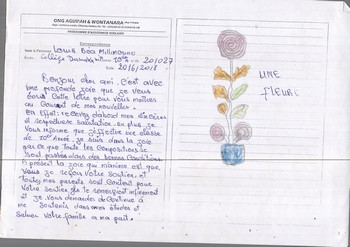 ONG AGUIPAH & WONTANARA
PROGRAMME D'ASSISTANCE SCOLAIRE
Correspondance
Louis Béa Millimouno
Collège 10ème N° 201027
Date 2016/2018
Bonjour cher ami, C'est avec
une profonde joie que je vous
écris Cette lettre pour vous mettre
au Courant de mes nouvelles.
En Effet: recevez d'abord mes sincères
et respectueuse salutation. en plus je
vous informe que j'effectue une classe
de 10ème année. je suis dans la joie
par ce que toute les Compositions se
Sont passées dans des bonnes Conditions.
A présent la joie qui m'anime est que
Vous je reçois Votre Soutien. et
toute mes parents sont Content pour
Votre soutien ils te remercient infiniment
et je vous demande de Continué à
me Soutenir dans mes études et
Saluer Votre famille a ma part.
UNE
FLEUR